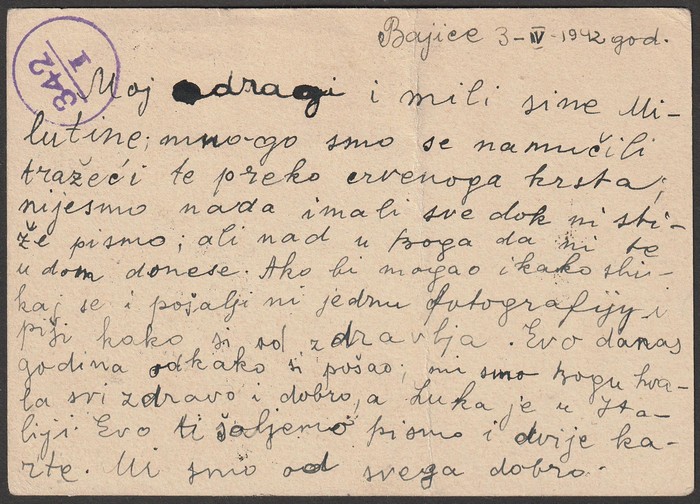 Bajice 3-IV-1942 god.
342
I
Moj dragi i mili sine Mi-
lutine; mnogo smo se namučili
tražeći te preko crvenoga krsta;
nijesmo nada imali sve dok ni sti-
že pismo; ali nad u Boga da ni te
u dom donese. Ako bi mogao ikako sli-
kaj se i pošalji ni jednu fotografiju i
piši kako si sa zdravlja. Evo danas
godina odkako si pošao; mi smo Bogu hva-
la svi zdravo i dobro, a Luka je u Ita-
liji. Evo ti šaljemo pismo i dvije ka-
rte. Mi smo od svega dobro.